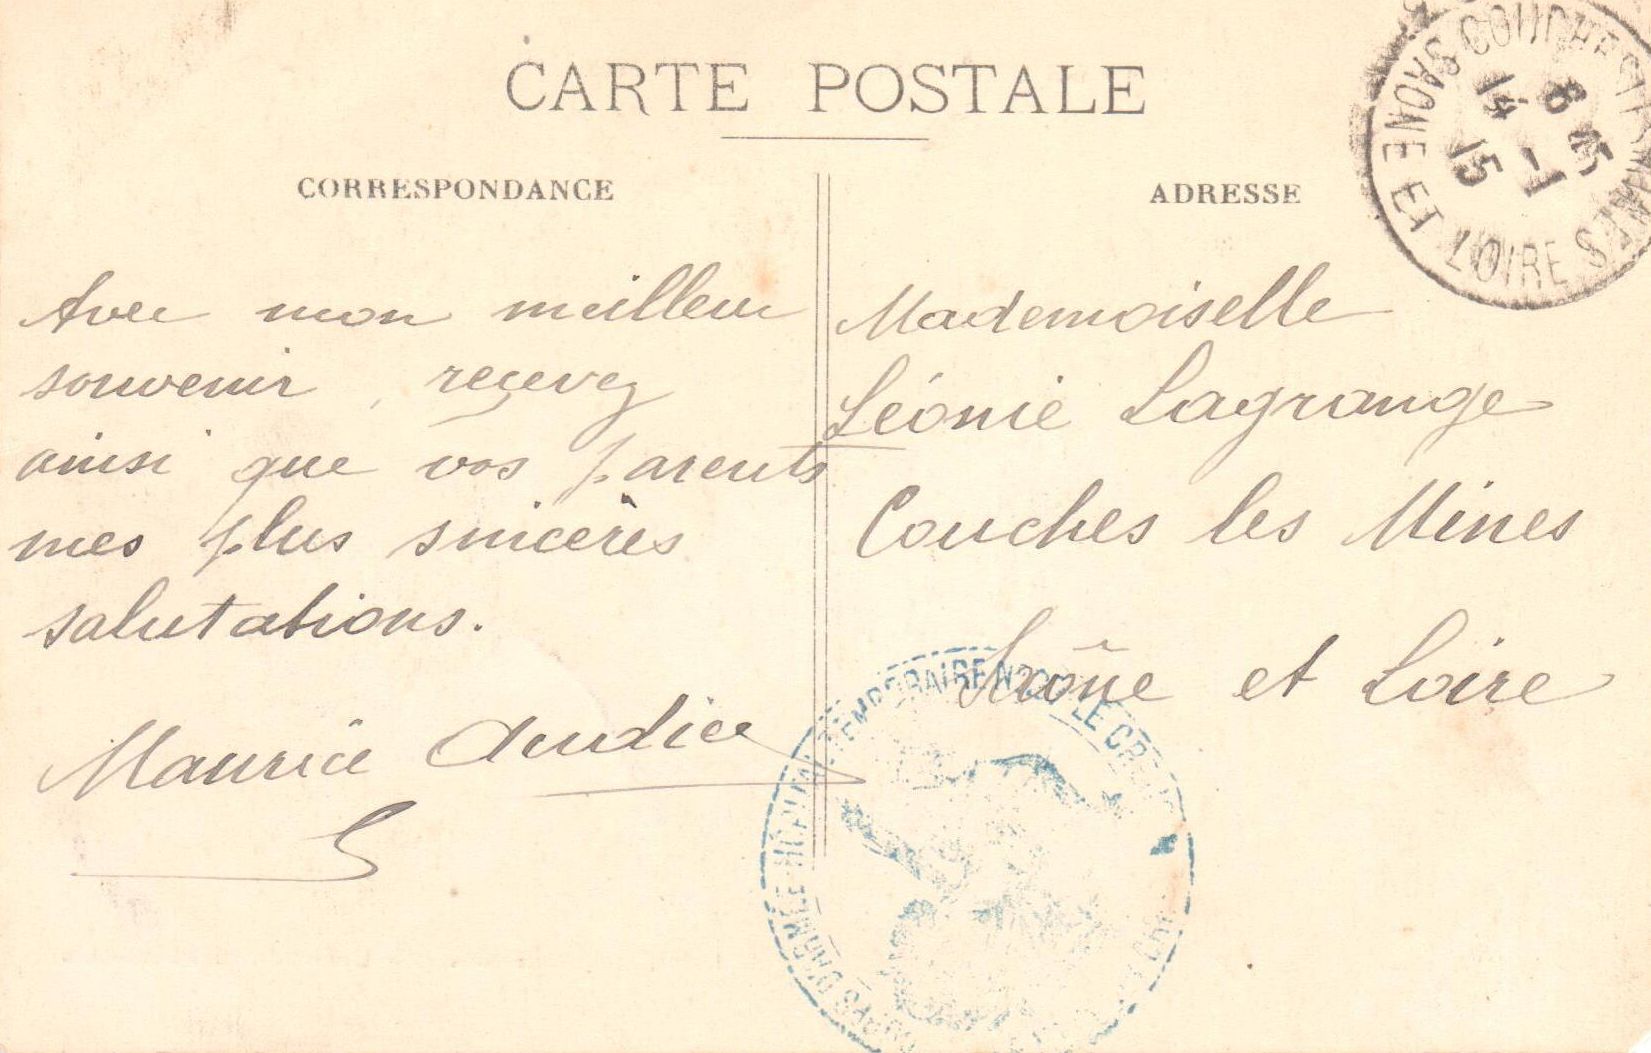 CARTE POSTALE
CORRESPONDANCE
Avec mon meilleur
souvenir, reçevez
ainsi que vos parents
mes plus sincères
salutations.
Maurice
ADRESSE
Mademoiselle
Léonie Lagrange
Couches les Mines
Saône et Loire
COUCHES-LES-MINES
SAONE ET LOIRE
6 45
14 -1
15
CORPS D'ARMÉE HOPITAL TEMPORAIRE N LE